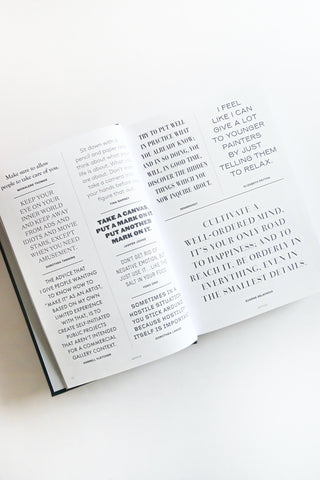 Make sure to allow
people to take care of you.
KEEP YOUR
EYE ON YOUR
INNER WORLD
AND KEEP AWAY
FROM ADS AND
IDIOTS AND MOVIE
STARS, EXCEPT
WHEN YOU NEED
AMUSEMENT.
DOROTHEA TANNING
THE ADVICE THAT
I GIVE PEOPLE WANTING
TO KNOW HOW TO
"MAKE IT" AS AN ARTIST,
BASED ON MY OWN
LIMITED EXPERIENCE
WITH THAT, IS TO
CREATE SELF-INITIATED
PUBLIC PROJECTS
THAT AREN'T INTENDED
FOR A COMMERCIAL
GALLERY CONTEXT.
HARRELL FLETCHER
Sit down with a
pencil and paper
think about what you
like about
TAKE A CANVAS.
PUT A MARK ON IT.
PUT ANOTHER
MARK ON IT.
JASPER JOHNS
DON'T GET RID OF
NEGATIVE EMOTION, BUT
JUST USE IT
SALT IN YOUR
SOMETIMES IN A
HOSTILE SITUATION
YOU STICK AROUND,
BECAUSE HOSTILITY
ITSELF IS IMPORTANT.
DOROTHEA LANGE
TRY TO PUT WELL
IN PRACTICE WHAT
YOU ALREADY KNOW;
AND IN SO DOING, YOU
WILL, IN GOOD TIME,
DISCOVER THE HIDDEN
THINGS WHICH YOU
NOW INQUIRE ABOUT.
REMBRANDT
I FEEL
LIKE I CAN
GIVE A LOT
TO YOUNGER
PAINTERS
BY JUST
TELLING THEM
TO RELAX.
ELIZABETH PEYTON
CULTIVATE A
WELL-ORDERED MIND.
IT'S YOUR ONLY ROAD
TO HAPPINESS; AND TO
REACH IT, BE ORDERLY IN
EVERYTHING, EVEN IN
THE SMALLEST DETAILS.
EUGÈNE DELACROIX